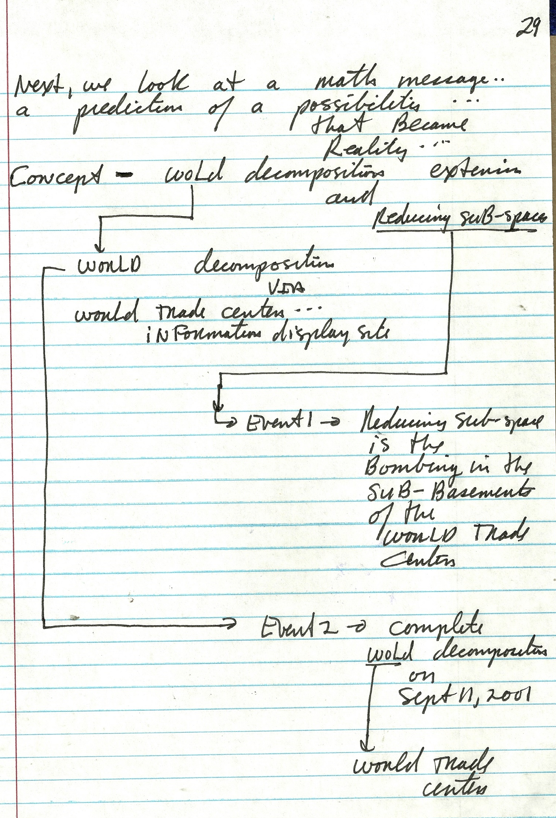 29
Next, we look at a math message..
a prediction of a possibilities ...
that Became
Reality...
Concept - wold decomposition
and
Reducing sub-space
WORLD decomposition
VIA
world trade center...
iNFormation display site
Event 1 → Reducing sub-space
is the
Bombing in the
SUB-Basements
of the
WORLD Trade
Centers
Event 2 → complete
wold decomposition
on
Sept 11, 2001
world trade
centers